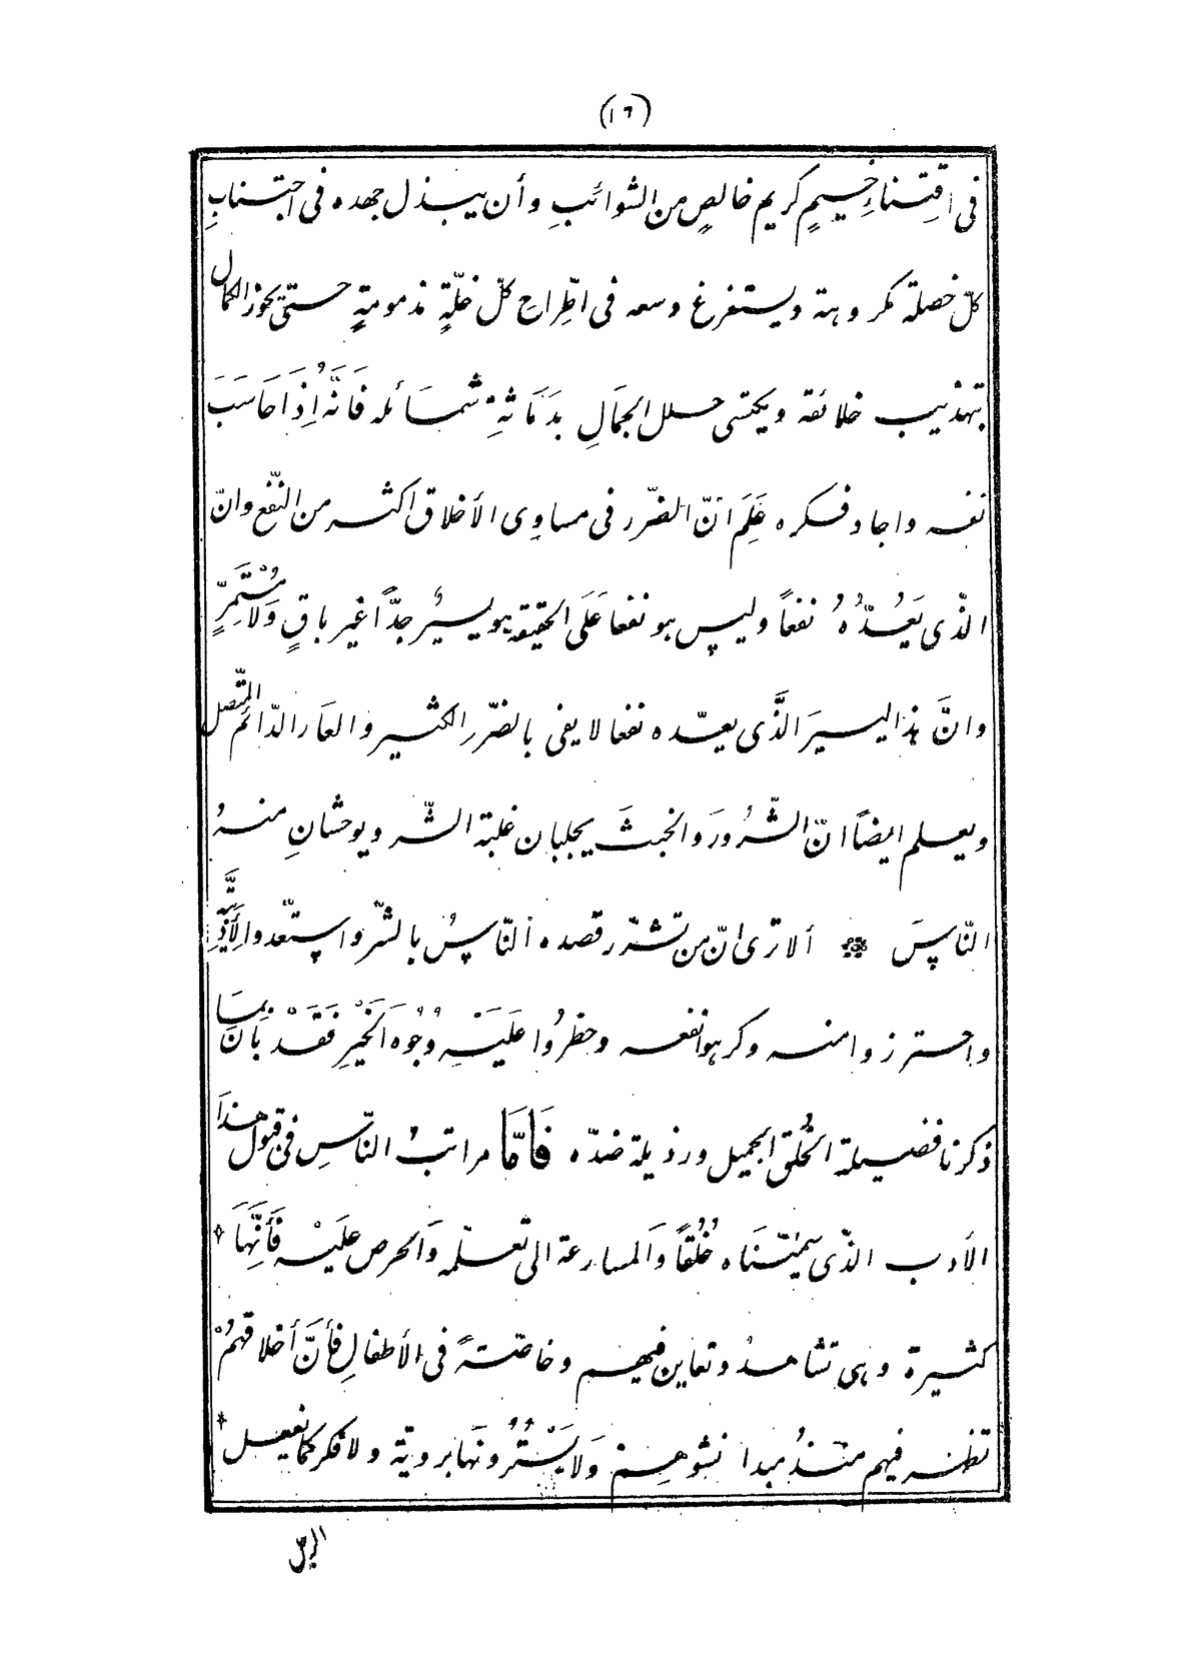 (١٦)
فى اقِتناءِ خِيمٍ كريم خالصٍ من الشوائبِ وأن يبذل جهده فى اجتنابِ
كلّ خصلة مكروهة ويستفرغ وسعه فى اطّراح كلّ خلّةٍ مذمومةٍ حتىّ يحوز الكمال
بتهذيب خلائقه ويكتسى حلل الجمَالِ بدَمَاثةِ شمَائله فَانَّهُ اِذَا حَاسَبَ
نفسه واجاد فكره عَلِمَ انّ الضّرر فى مساوِى الأخلاق اكثر من النّفع وانّ
الذّى يَعُدُّهُ نفعاً وليس هو نفعا عَلَى الحقيقة هو يسيرٌ جدّاً غير باقٍ وَلَا مُسْتَمِرٍّ
وانَّ هذا اليسيرَ الذَّى يعدّه نفعا لا يفى بالضّررِ الكثير والعَار الدّائم المتّصل
ويعلم ايضاً انّ الشّرُورَ والخبثَ يجلبان غلبة الشّر ويوحشانِ منهُ
النّاسَ ۞ ألا ترى انّ من تشرّر قصده النّاسُ بالشّر واستعّدوا لِأَذِيَّتِهِ
واحترزوا منه وكرهوا نفعه وحظرُوا عَلَيْهِ وُجُوهَ الخَيْرِ فَقَدْ بَانَ بمَا
ذكرنا فضيلة الخُلق الجميل ورذيلة ضدّه فَاَمَّا مراتبُ النّاسِ فى قبول هذَا
الأدب الذّى سمّيْنَاه خُلُقاً وَالمسارعة الى تعلّمه وَالحرص عَليْه فَأنِّهَا
كثيرة وهى تشاهدُ وتعاين فيهم وخاصّةً فى الأطفالِ فأنَّ أخلاقهمُْ
تظهر فيهم منذُ مبدا نشوهم وَلَا يَسْتُرُونهَا بروِيّة ولا فكر كما يفعل
الرجل